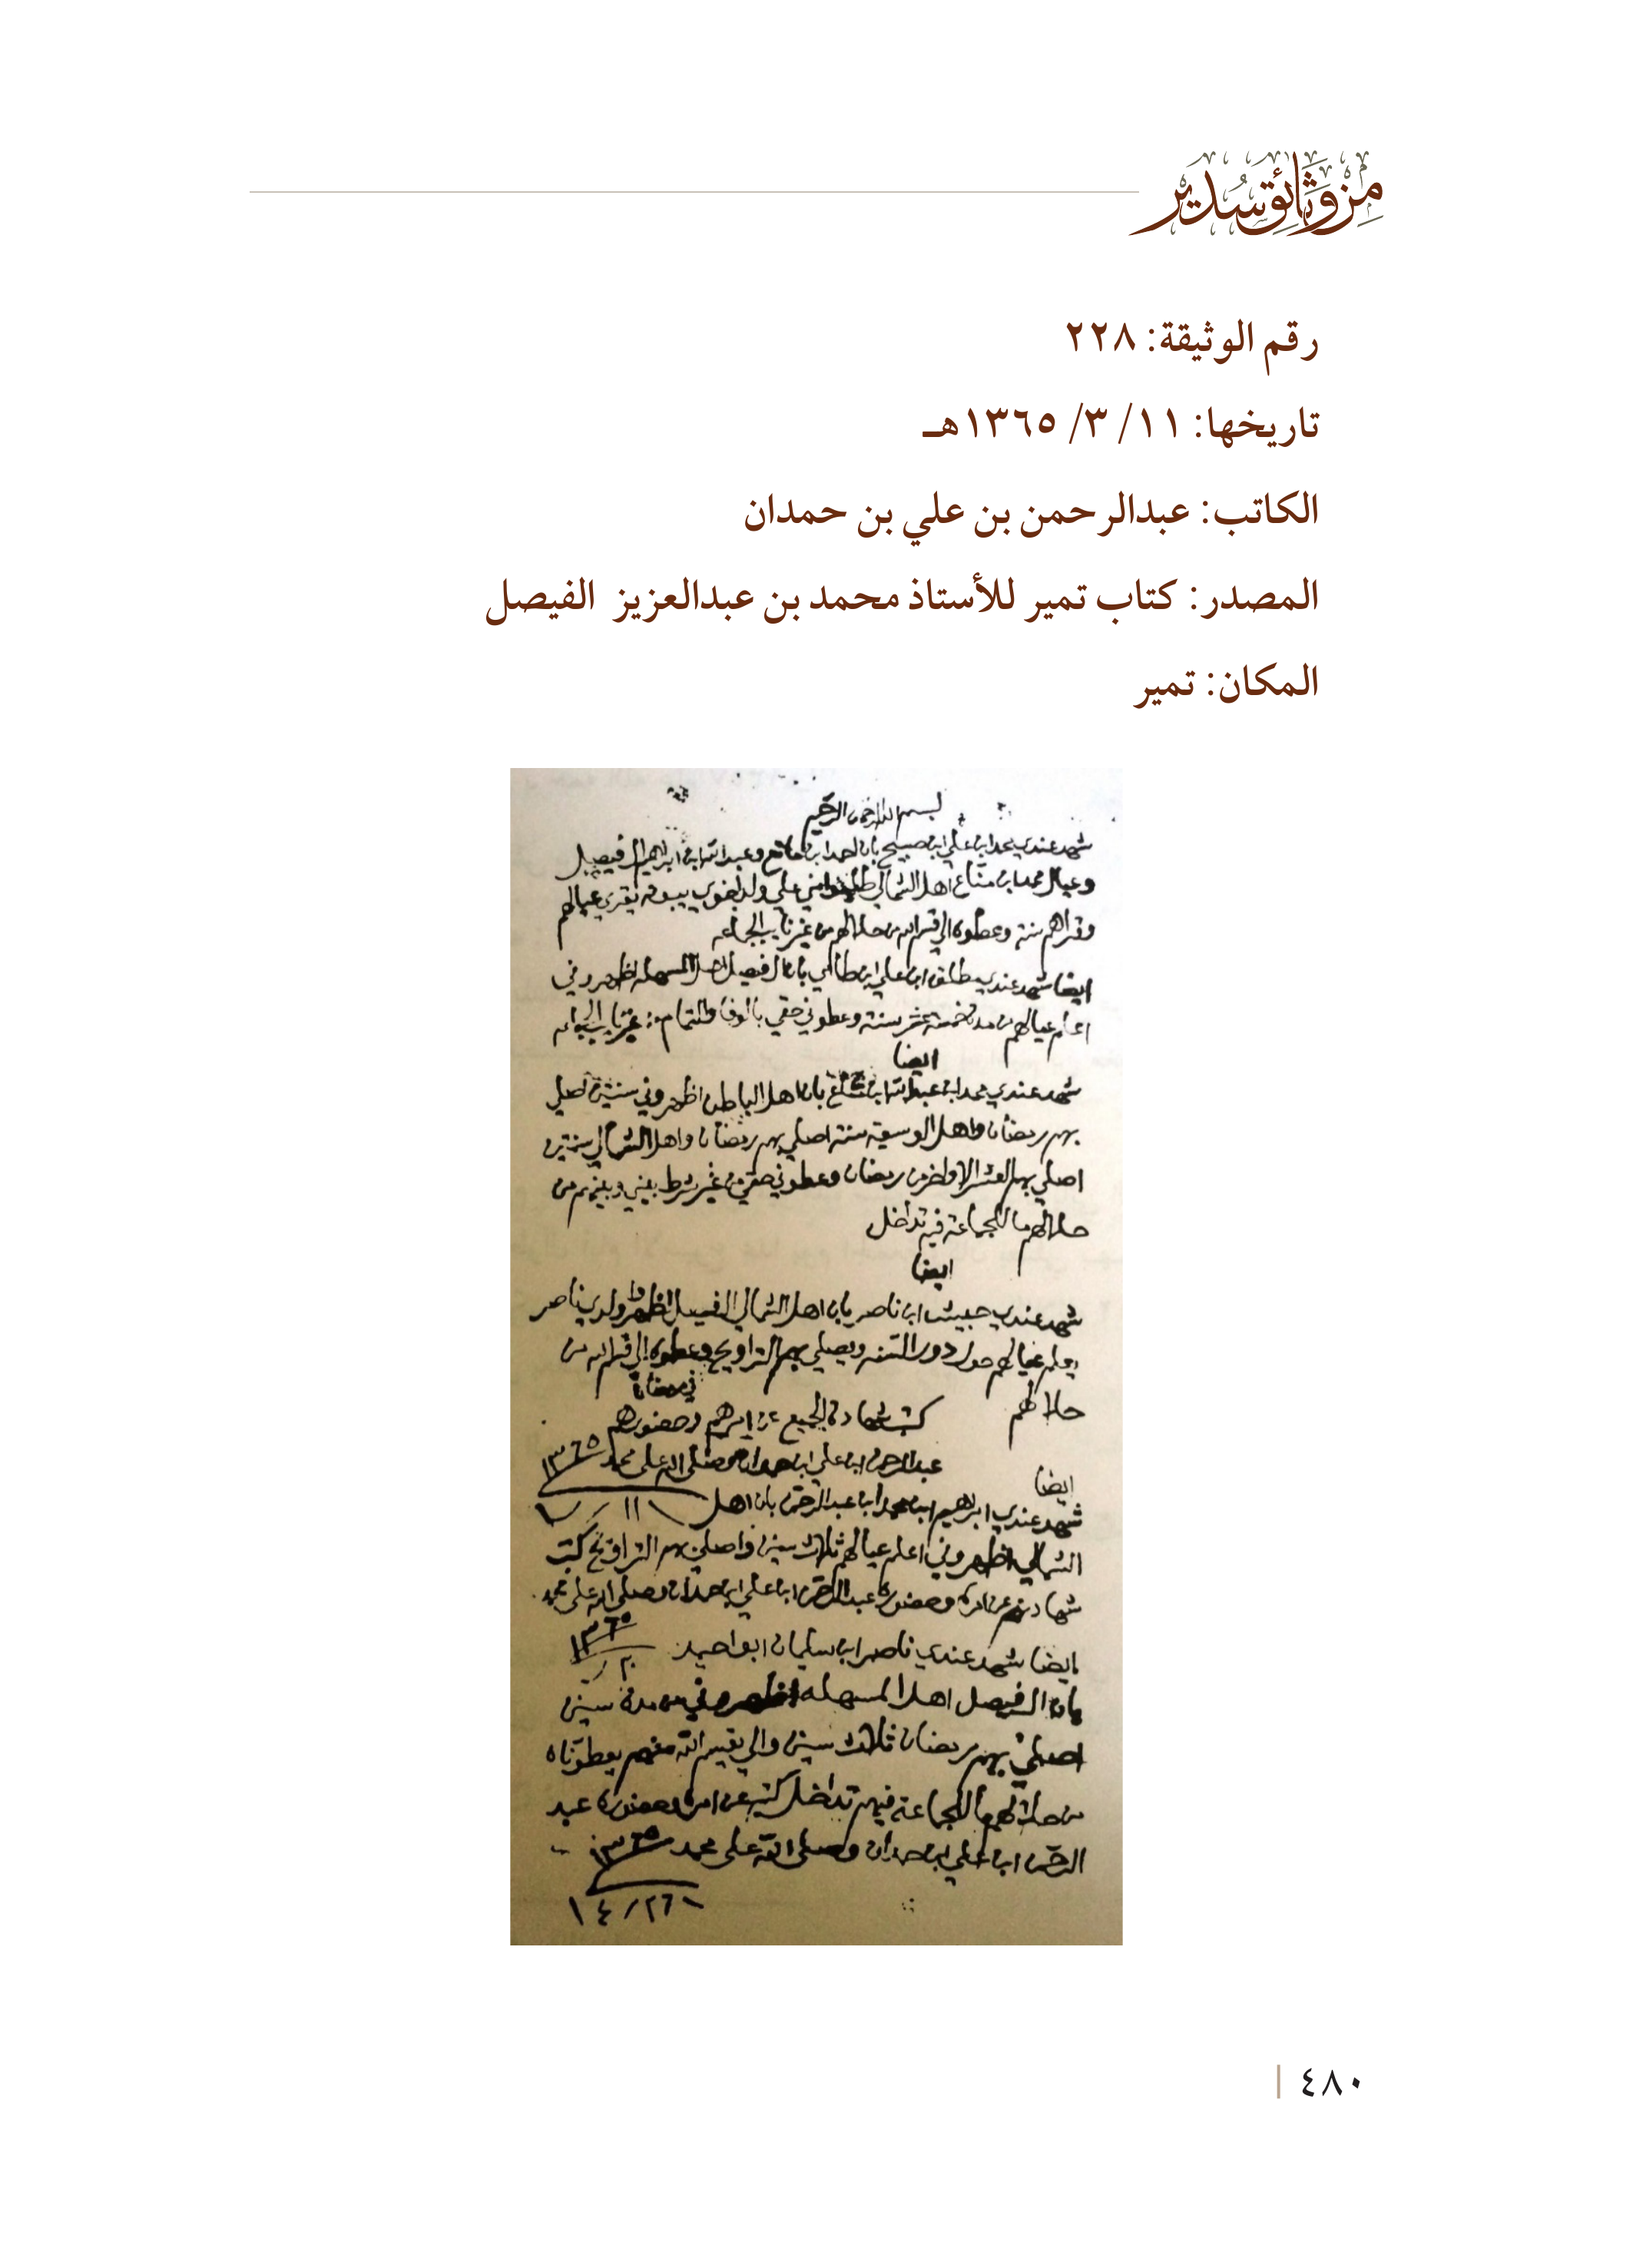 من وثائق سدير
رقم الوثيقة: ٢٢٨
تاريخها: ١١/ ٣/ ١٣٦٥هـ
الكاتب: عبدالرحمن بن علي بن حمدان
المصدر: كتاب تمير للأستاذ محمد بن عبدالعزيز الفيصل
المكان: تمير
بسم الله الرحمن الرحيم
شهد عندي ابن علي ابن صبيح بان احمد ابن وعبدالله ابن ابراهيم الفيصل
وعيال محمد ابن مناع اهل الشمالي علي ولد يقري عيالهم
وقراهم سنة وعطوه الي قسم الله من حلالهم من غير
ايضا شهد عندي مطلق ابن علي ابن طالبي بان ال فيصل اهل المسهله اظهروني
اعلم عيالهم من مدة خمسة عشر سنة وعطوني حقي بالوفا والتمام
ايضا
شهد عندي محمد ابن عبدالله ابن مناع بان اهل الباطن اظهروني سنتين اصلي
بهم رمضان واهل الوسيعه سنة اصلي بهم رمضان واهل الشمالي سنتين
اصلي بهم العشر الاواخر من رمضان وعطوني حقي من غير شرط بيني وبينهم من
حلالهم ما للجماعة فيه تداخل
ايضا
شهد عندي حبيش ابن ناصر بان اهل الشمالي الفيصل اظهروا ولدي ناصر
يعلم عيالهم حول دور السنه ويصلي بهم التراويح وعطوه الي قسم الله من
في رمضان
حلالهم
كتب شهادة الجميع عن امرهم وحضورهم
عبدالرحمن ابن علي ابن حمدان وصلى الله على محمد ١٣٦٥
ايضا
١١
شهد عندي ابراهيم ابن محمد ابن عبدالرحمن بان اهل
الشمالي اظهروني اعلم عيالهم ثلاث سنين واصلي بهم التراويح كتب
شهادتهم عن امره وحضوره عبدالرحمن ابن علي ابن حمدان وصلى الله على محمد
١٣٦٥
ايضا شهد عندي ناصر ابن سليمان ابو احيمد
بان ال فيصل اهل المسهله اظهروني من مدة سنين
اصلي بهم رمضان ثلاث سنين والي يقسم الله منهم يعطوناه
من حلالهم ما للجماعة فيهم تداخل كتبه عن امره وحضوره عبد
الرحمن ابن علي ابن حمدان وصلى الله على محمد ١٣٦٥
٢٦/ ٤
٤٨٠